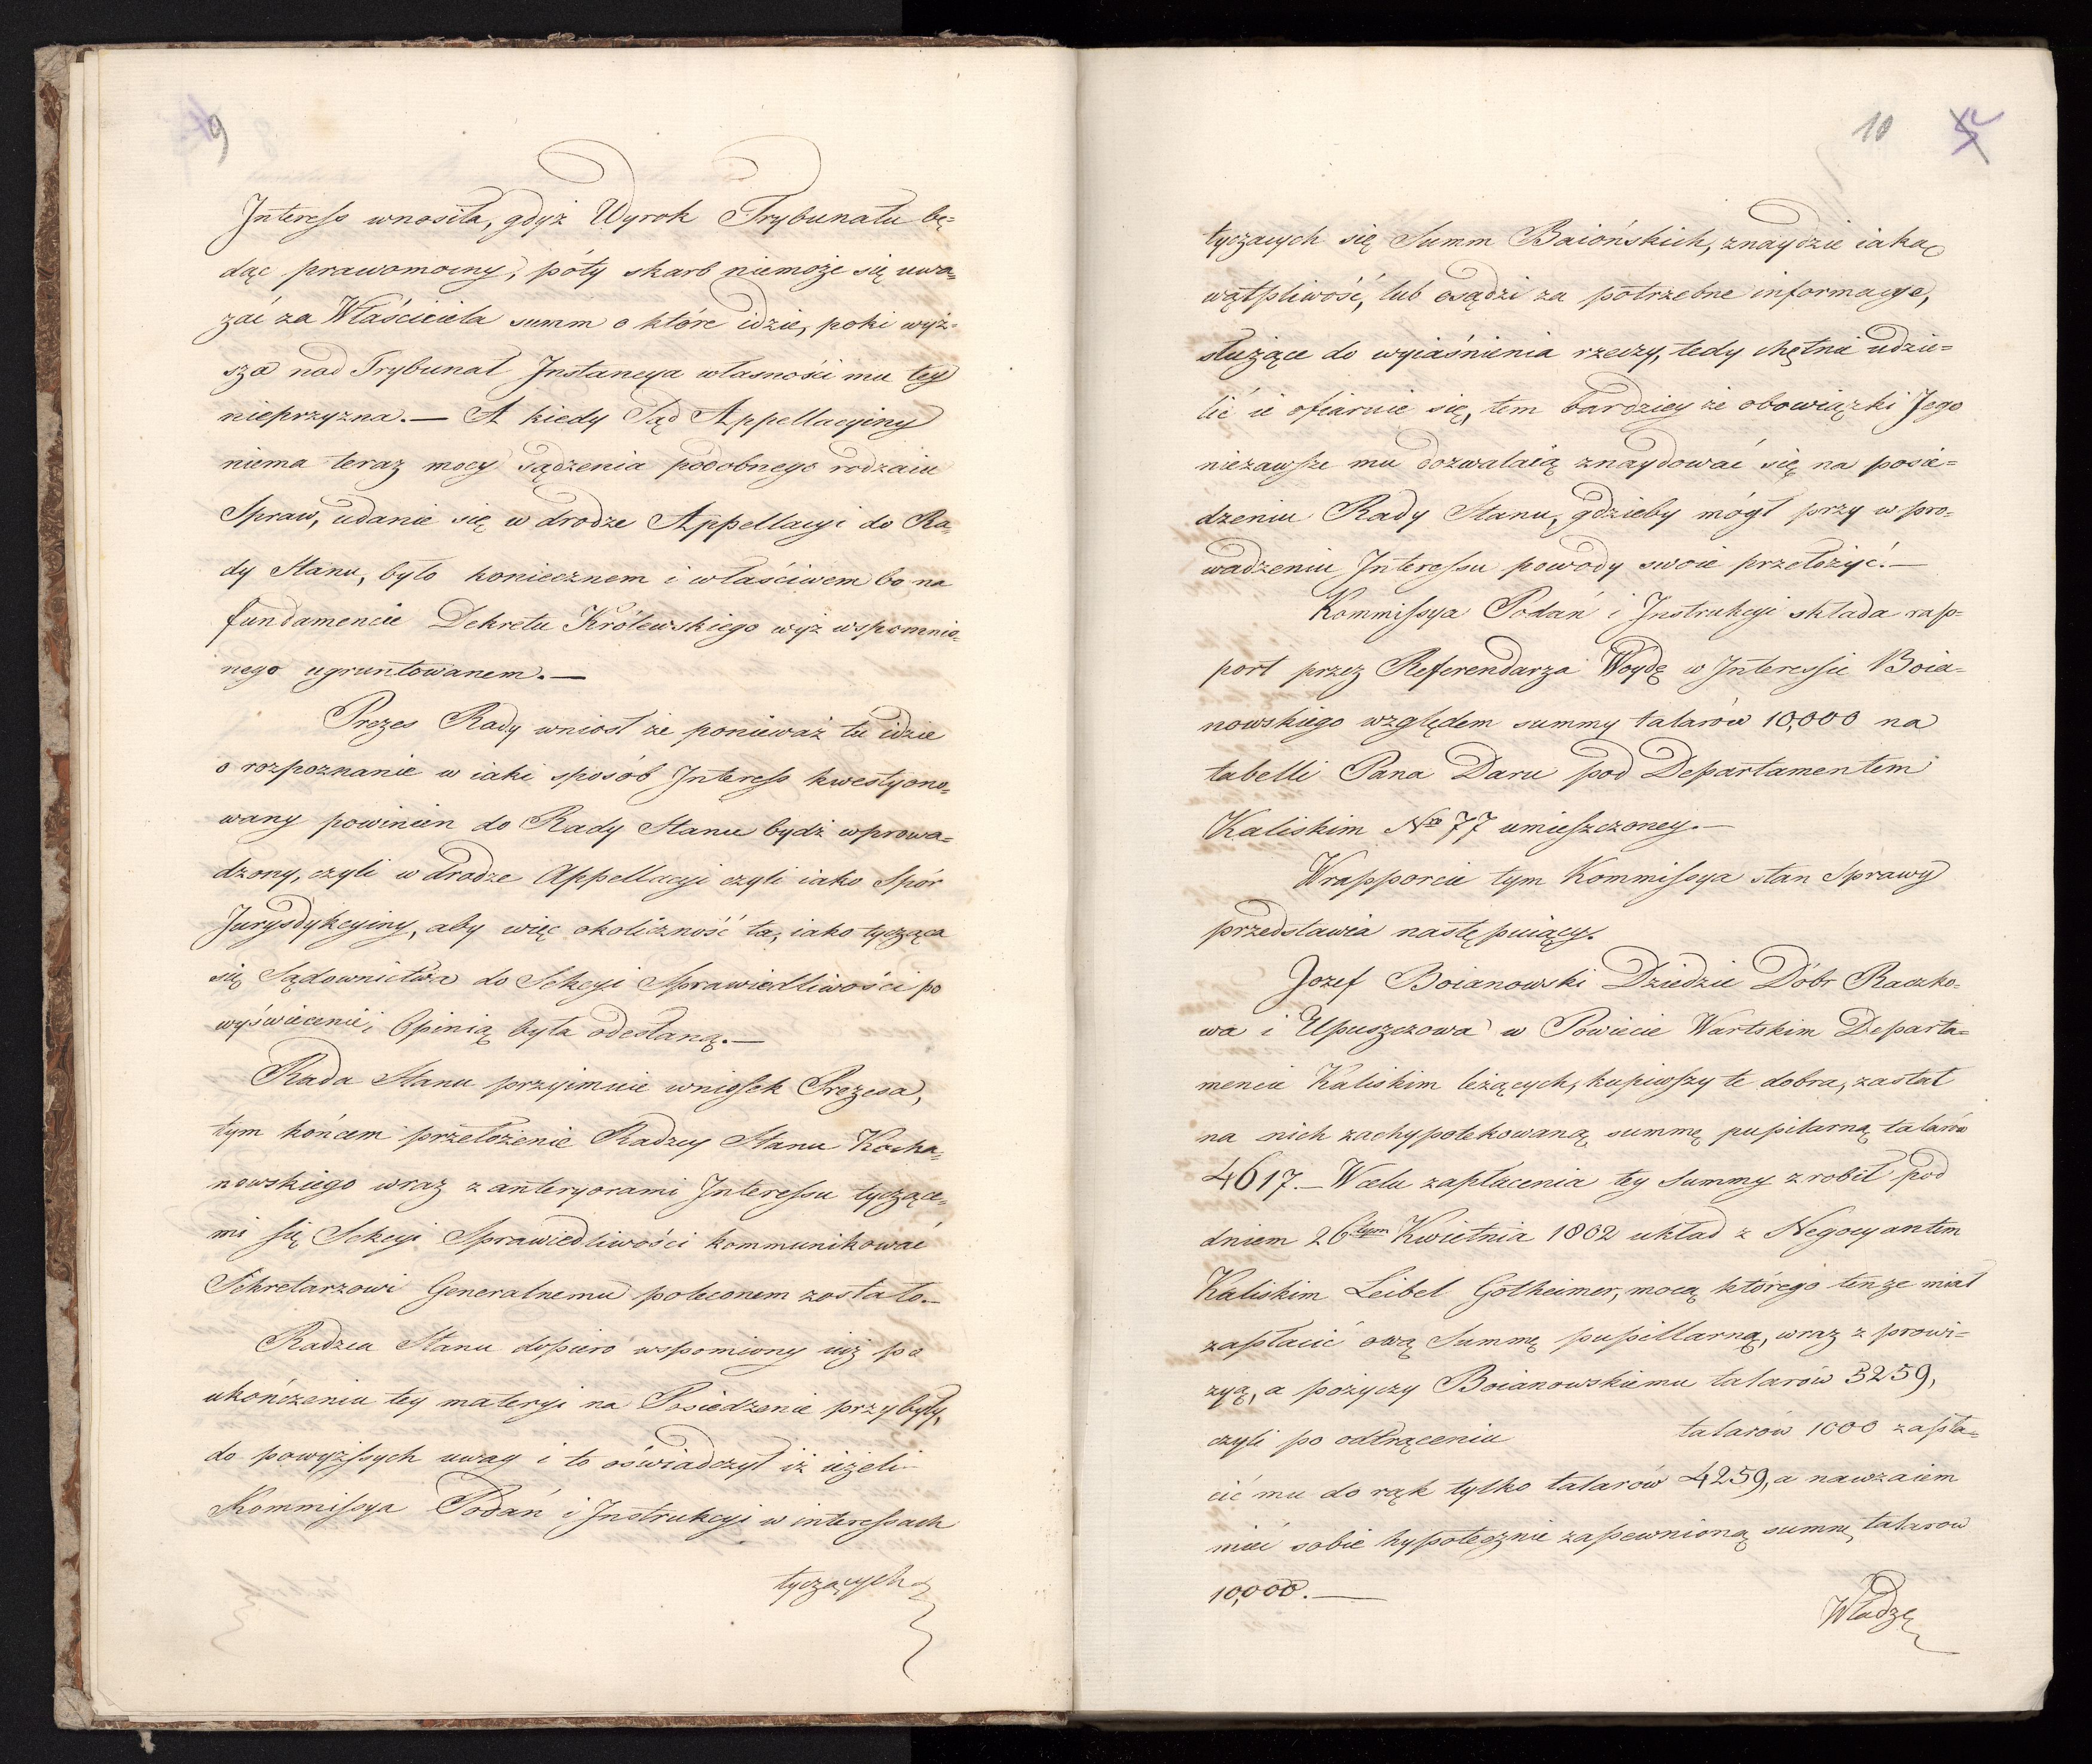 9
Interess wnosiła, gdyż Wyrok Trybunału bę=
dąc prawomocny, póty skarb niemoże się uwa=
żać za Właściciela summ o które idzie, poki wyż=
sza nad Trybunał Instancya własności mu tey
nieprzyzna.— A kiedy Sąd Appellacyiny
niema teraz mocy sądzenia podobnego rodzaiu
Spraw, udanie się w drodze Appellacyi do Ra=
dy Stanu, było koniecznem i właściwem bo na
fundamencie Dekretu Królewskiego wyż wspomnio=
nego ugruntowanem.—
Prezes Rady wniosł że ponieważ tu idzie
o rozpoznanie w iaki sposób Interess kwestyono=
wany powinien do Rady Stanu bydź wprowa=
dzony, czyli w drodze Appellacyi czyli iako Spór
Jurysdykcyiny, aby więc okoliczność ta, iako tycząca
się Sądownictwa do Sekcyi Sprawiedliwości po
wyświecenie i Opinią była odesłaną.—
Rada Stanu przyimuie wniosek Prezesa,
tym końcem przełożenie Radzcy Stanu Kocha=
nowskiego wraz z anteryorami Interessu tyczące=
mi się Sekcyi Sprawiedliwości kommunikować
Sekretarzowi Generalnemu poleconem zostało.—
Radzca Stanu dopiero wspomiony iuż po
ukończeniu tey materyi na Posiedzenie przybyły,
do powyższych uwag i to oświadczył iż ieżeli
Kommissya Podań i Instrukcyi w interessach
tyczących
10
tyczących się Summ Baiońskich, znaydzie iaką
wątpliwość, lub osądzi za potrzebne informacye,
służące do wyiaśnienia rzeczy, tedy chętnie udzie=
lić ie ofiaruie się, tem bardziey że obowiązki Jego
niezawsze mu dozwalaią znaydować się na posie=
dzeniu Rady Stanu, gdzieby mógł przy wpro=
wadzeniu Interessu powody swoie przełożyć.—
Kommissya Podań i Instrukcyi składa rap=
port przez Referendarza Woydę w Interessie Boia=
nowskiego względem summy talarów 10,000 na
tabelli Pana Daru pod Departamentem
Kaliskim Nro 77 umieszczoney.—
W rapporcie tym Kommissya stan Sprawy
przedstawia następuiący.
Jozef Boianowski Dziedzic Dóbr Raczko=
wa i Upuszczowa w Powiecie Wartskim Departa=
mencie Kaliskim leżących, kupiwszy te dobra, zastał
na nich zachypotekowaną summę pupilarną talarów
4617.— W celu zapłacenia tey Summy zrobił pod
dniem 26tym Kwietnia 1802 układ z Negocyantem
Kaliskim Leibel Gotheimer, mocą którego tenże miał
zapłacić ową Summę pupillarną, wraz z prowi=
zyą, a pożyczy Boianowskiemu talarów 5259,
czyli po odtrąceniu talarów 1000 zapła=
cić mu do rąk tylko talarów 4259, a nawzaiem
mieć sobie hypotecznie zapewnioną summę talarow
10,000.—
Władzę